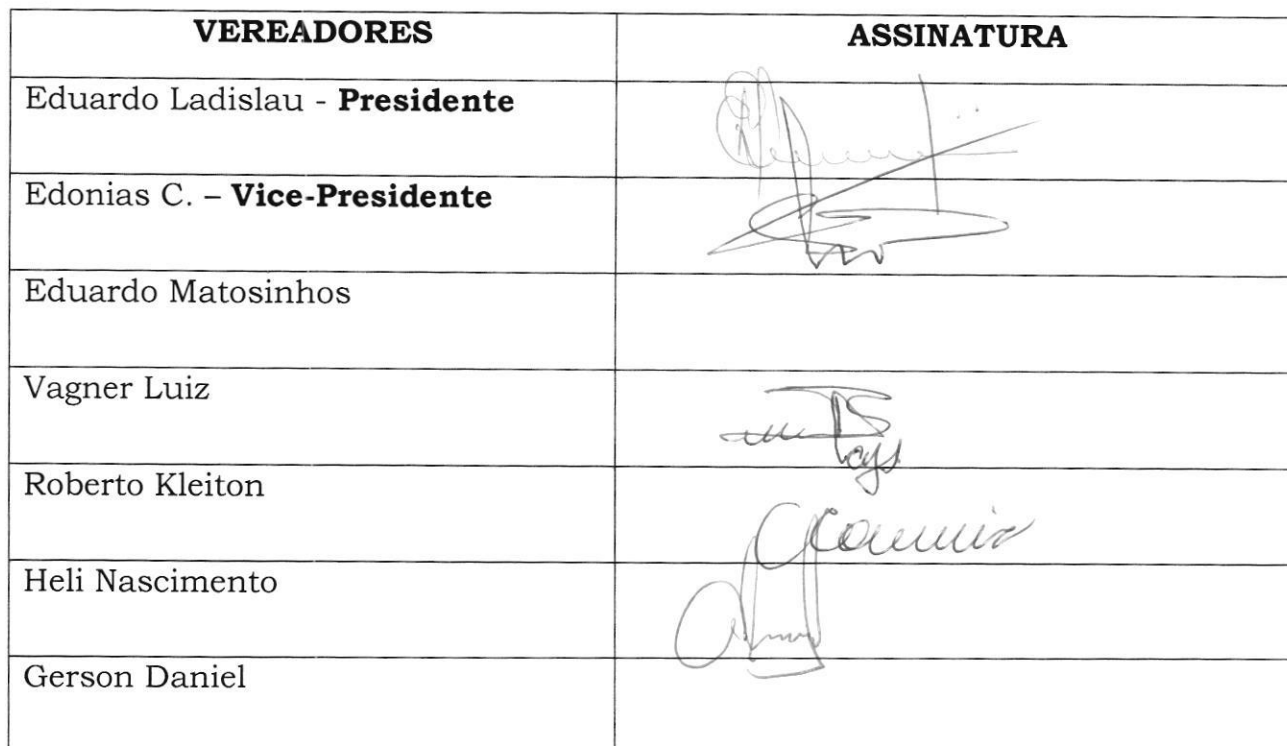 VEREADORES ASSINATURA
Eduardo Ladislau - Presidente
Edonias C. – Vice-Presidente
Eduardo Matosinhos
Vagner Luiz
Roberto Kleiton
Heli Nascimento
Gerson Daniel